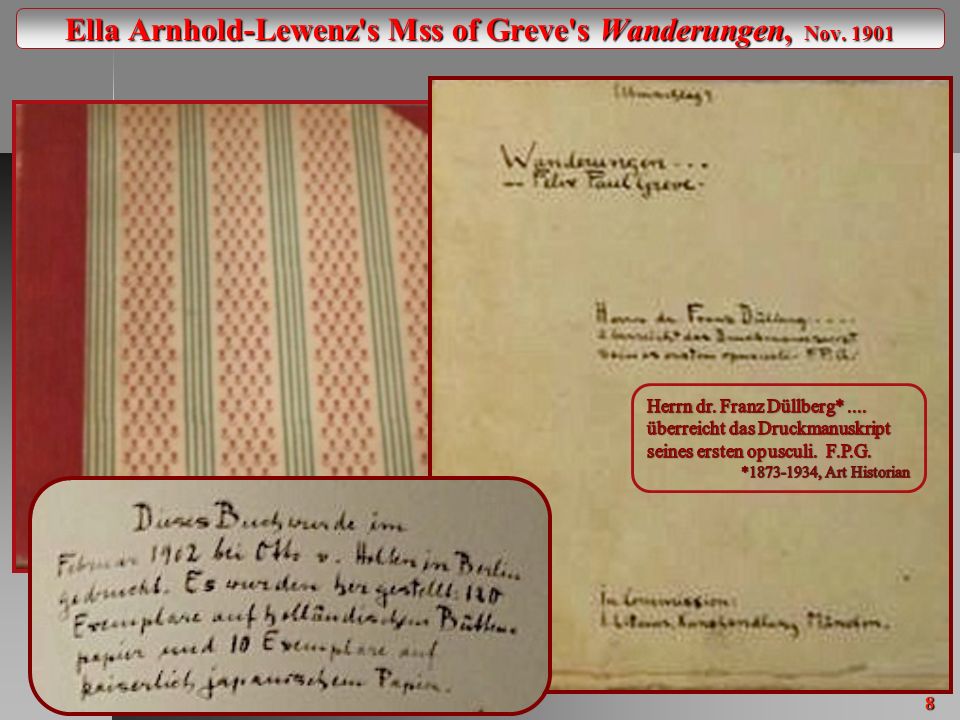 Ella Arnhold-Lewenz's Mss of Greve's Wanderungen, Nov. 1901
(Umschlag)
Wanderungen...
— Felix Paul Greve.
Herrn dr. Franz Düllberg.....
überreicht das Druckmanuscript
seines ersten opusculi F.P.G.
Herrn dr. Franz Düllberg* ....
überreicht das Druckmanuskript
seines ersten opusculi. F.P.G.
*1873-1934, Art Historian
Dieses Buch wurde im
Februar 1902 bei Otto v. Holten in Berlin
gedruckt. Es wurden hergestellt: 120
Exemplare auf holländischem Bütten-
papier und 10 Exemplare auf
kaiserlich japanischem Papier.
In Commission:
München.
8